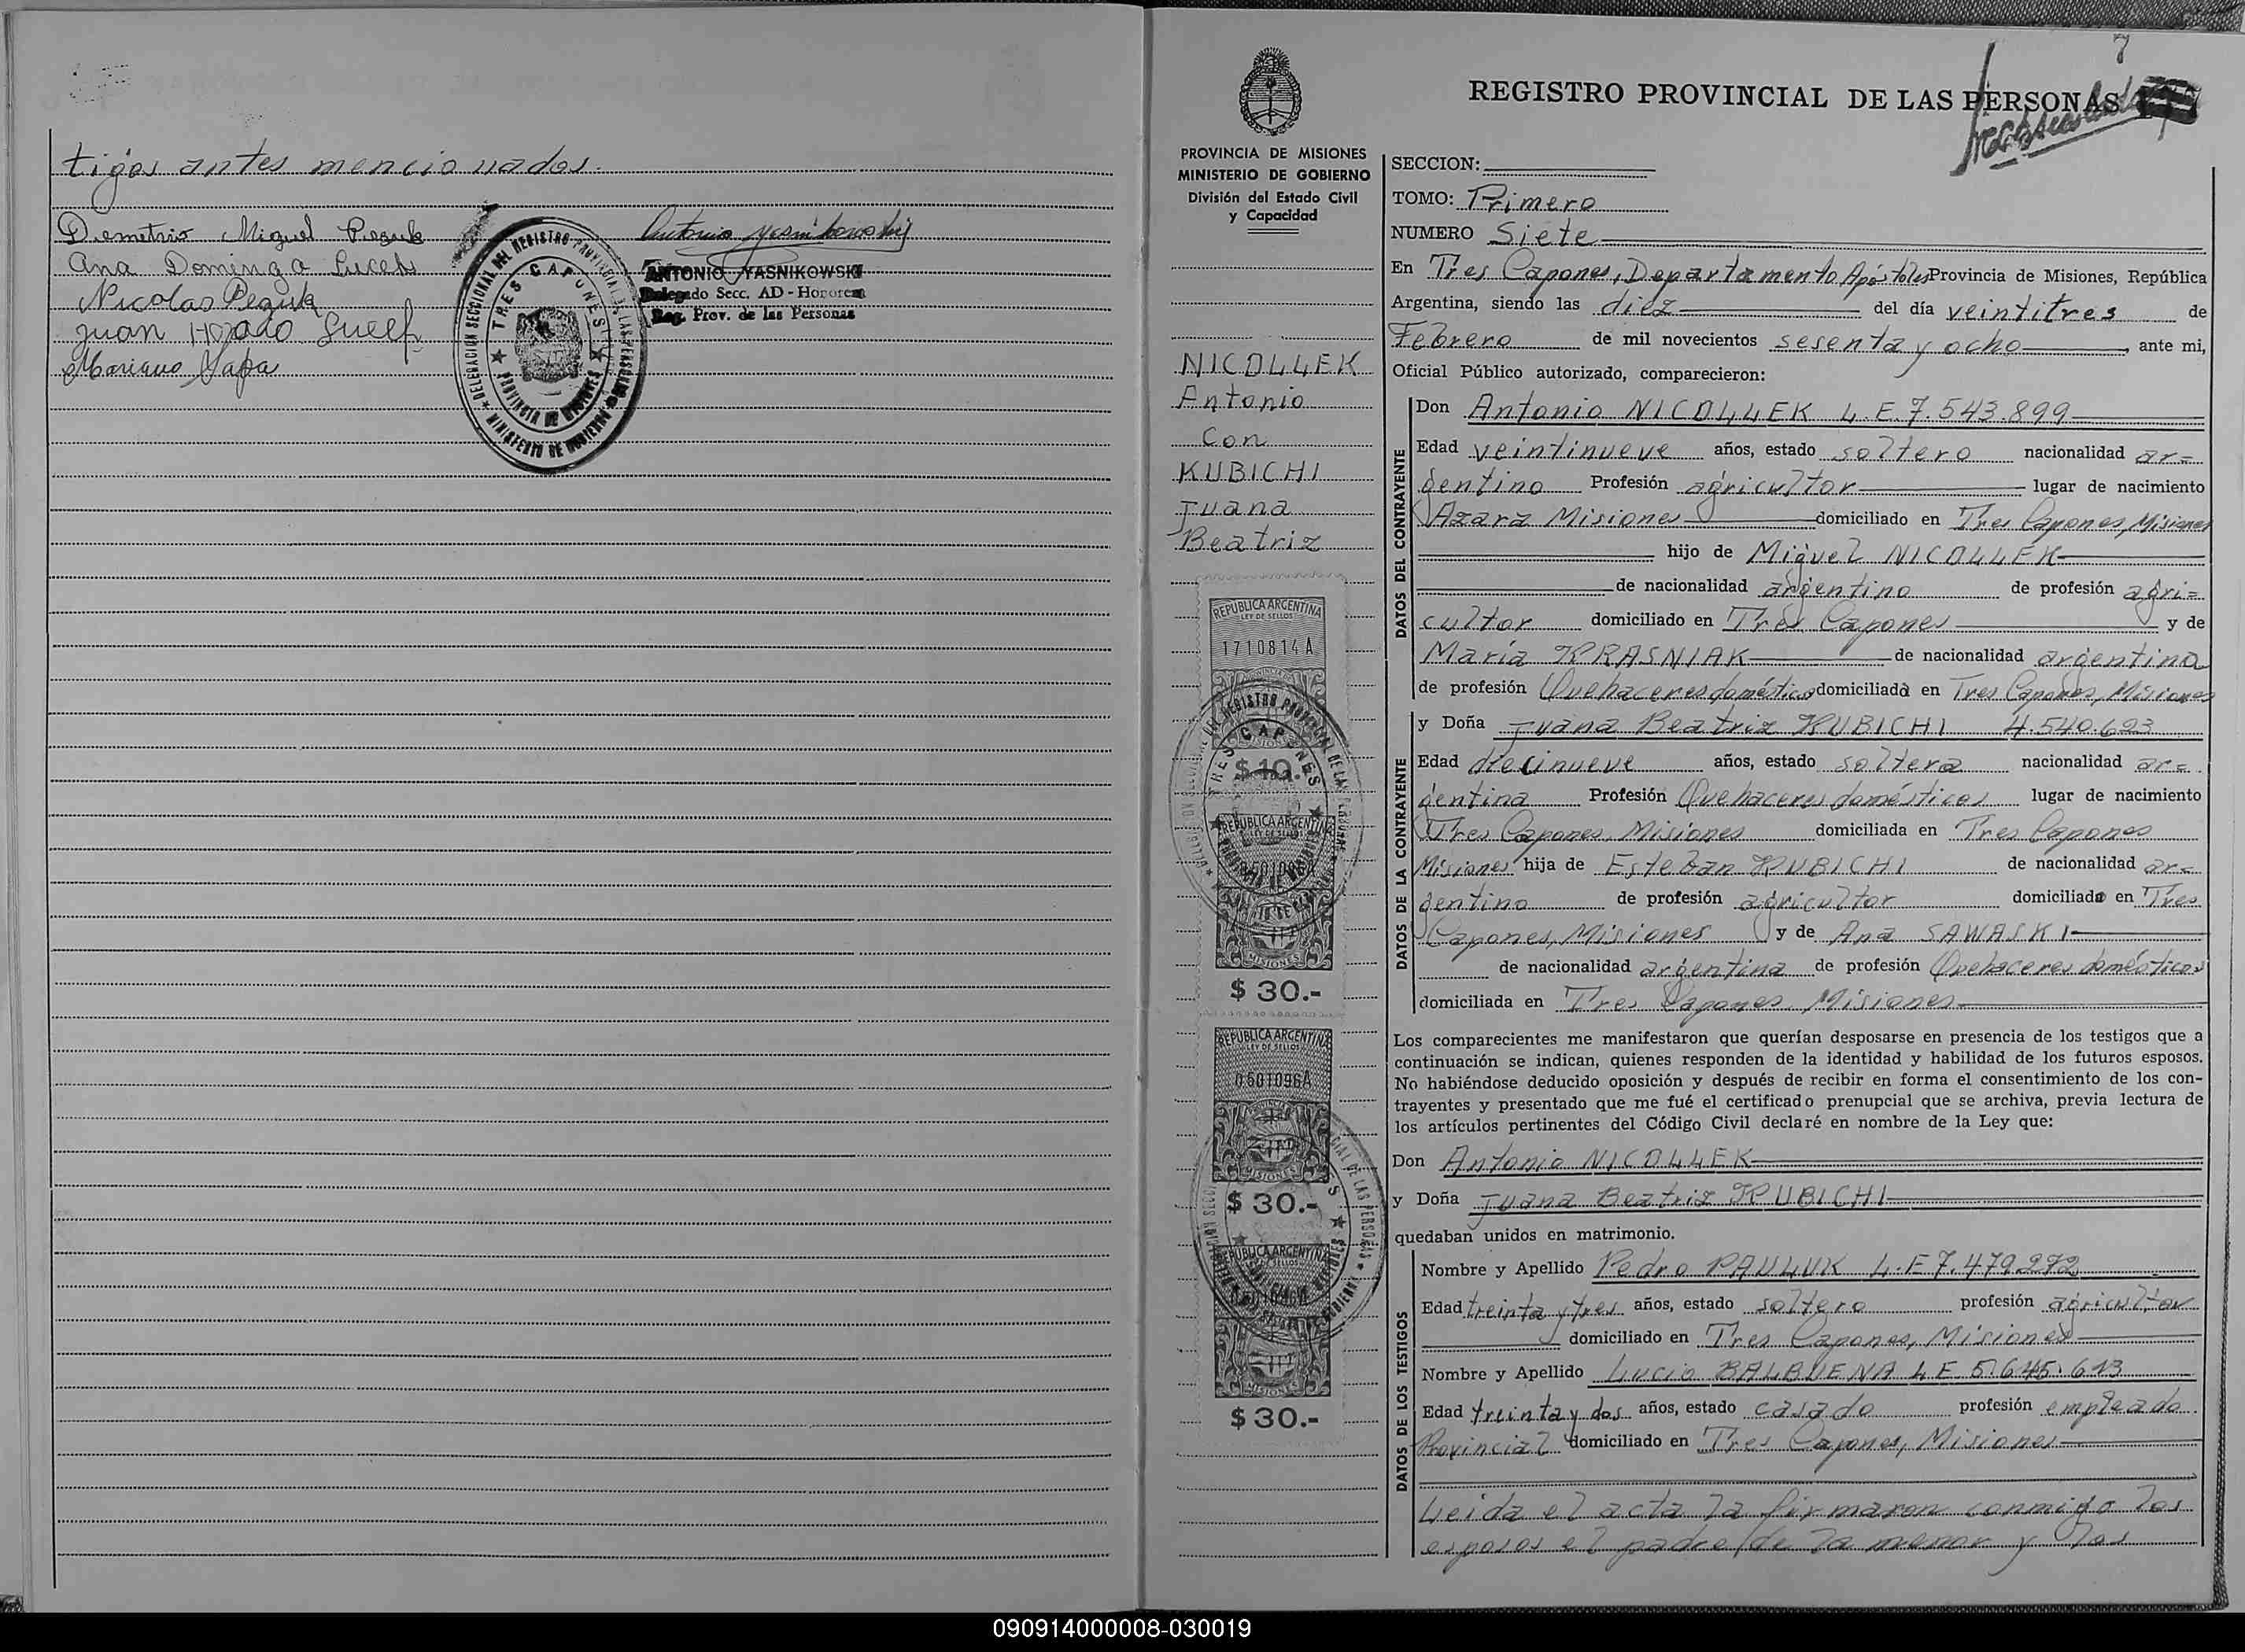 tigos antes mencionados.
Demetrio Miguel Pezuk
Ana Dominga
Nicolas Pezuk
Juan
Mariano
DELEGACION SECCIONAL DEL REGISTRO PROVINCIAL DE LAS PERSONAS
TRES CAPONES
PROVINCIA DE MISIONES
MINISTERIO DE GOBIERNO
Antonio Yasnikowski
ANTONIO YASNIKOWSKI
Delegado Secc. AD-Honorem
Reg. Prov. de las Personas
PROVINCIA DE MISIONES
MINISTERIO DE GOBIERNO
División del Estado Civil
y Capacidad
NICOLLEK
Antonio
Con
KUBICHI
Juana
Beatriz
REPUBLICA ARGENTINA
LEY DE SELLOS
1710814A
$ 10.-
REPUBLICA ARGENTINA
MISIONES
$ 30.-
REPUBLICA ARGENTINA
LEY DE SELLOS
0501096A
MISIONES
$ 30.-
REPUBLICA ARGENTINA
MISIONES
$ 30.-
7
REGISTRO PROVINCIAL DE LAS PERSONAS
SECCION:
TOMO: Primero
NUMERO Siete
En Tres Capones, Departamento Apóstoles Provincia de Misiones, República
Argentina, siendo las diez del día veintitres de
Febrero de mil novecientos sesenta y ocho, ante mi,
Oficial Público autorizado, comparecieron:
DATOS DEL CONTRAYENTE
Don Antonio NICOLLEK L.E. 7.543.899
Edad veintinueve años, estado soltero nacionalidad ar=
gentino Profesión agricultor lugar de nacimiento
Azara Misiones domiciliado en Tres Capones, Misiones
hijo de Miguel NICOLLEK
de nacionalidad argentino de profesión agri=
cultor domiciliado en Tres Capones y de
María KRASNIAK de nacionalidad argentina
de profesión Quehaceres domésticos domiciliada en Tres Capones, Misiones
DATOS DE LA CONTRAYENTE
y Doña Juana Beatriz KUBICHI 4.540.623
Edad diecinueve años, estado soltera nacionalidad ar=
gentina Profesión Quehaceres domésticos lugar de nacimiento
Tres Capones, Misiones domiciliada en Tres Capones
Misiones hija de Esteban KUBICHI de nacionalidad ar=
gentino de profesión agricultor domiciliado en Tres
Capones, Misiones y de Ana SAWASKI
de nacionalidad argentina de profesión Quehaceres domésticos
domiciliada en Tres Capones, Misiones
Los comparecientes me manifestaron que querían desposarse en presencia de los testigos que a
continuación se indican, quienes responden de la identidad y habilidad de los futuros esposos.
No habiéndose deducido oposición y después de recibir en forma el consentimiento de los con-
trayentes y presentado que me fué el certificado prenupcial que se archiva, previa lectura de
los artículos pertinentes del Código Civil declaré en nombre de la Ley que:
Don Antonio NICOLLEK
y Doña Juana Beatriz KUBICHI
quedaban unidos en matrimonio.
DATOS DE LOS TESTIGOS
Nombre y Apellido Pedro PAULUK L.E 7.479.272
Edad treinta y tres años, estado soltero profesión agricultor
domiciliado en Tres Capones, Misiones
Nombre y Apellido Lucio BALBUENA L E 5.645.613
Edad treinta y dos años, estado casado profesión empleado
Provincial domiciliado en Tres Capones, Misiones
Leida el acta la firmaron conmigo los
esposos el padre de la menor y los
090914000008-030019